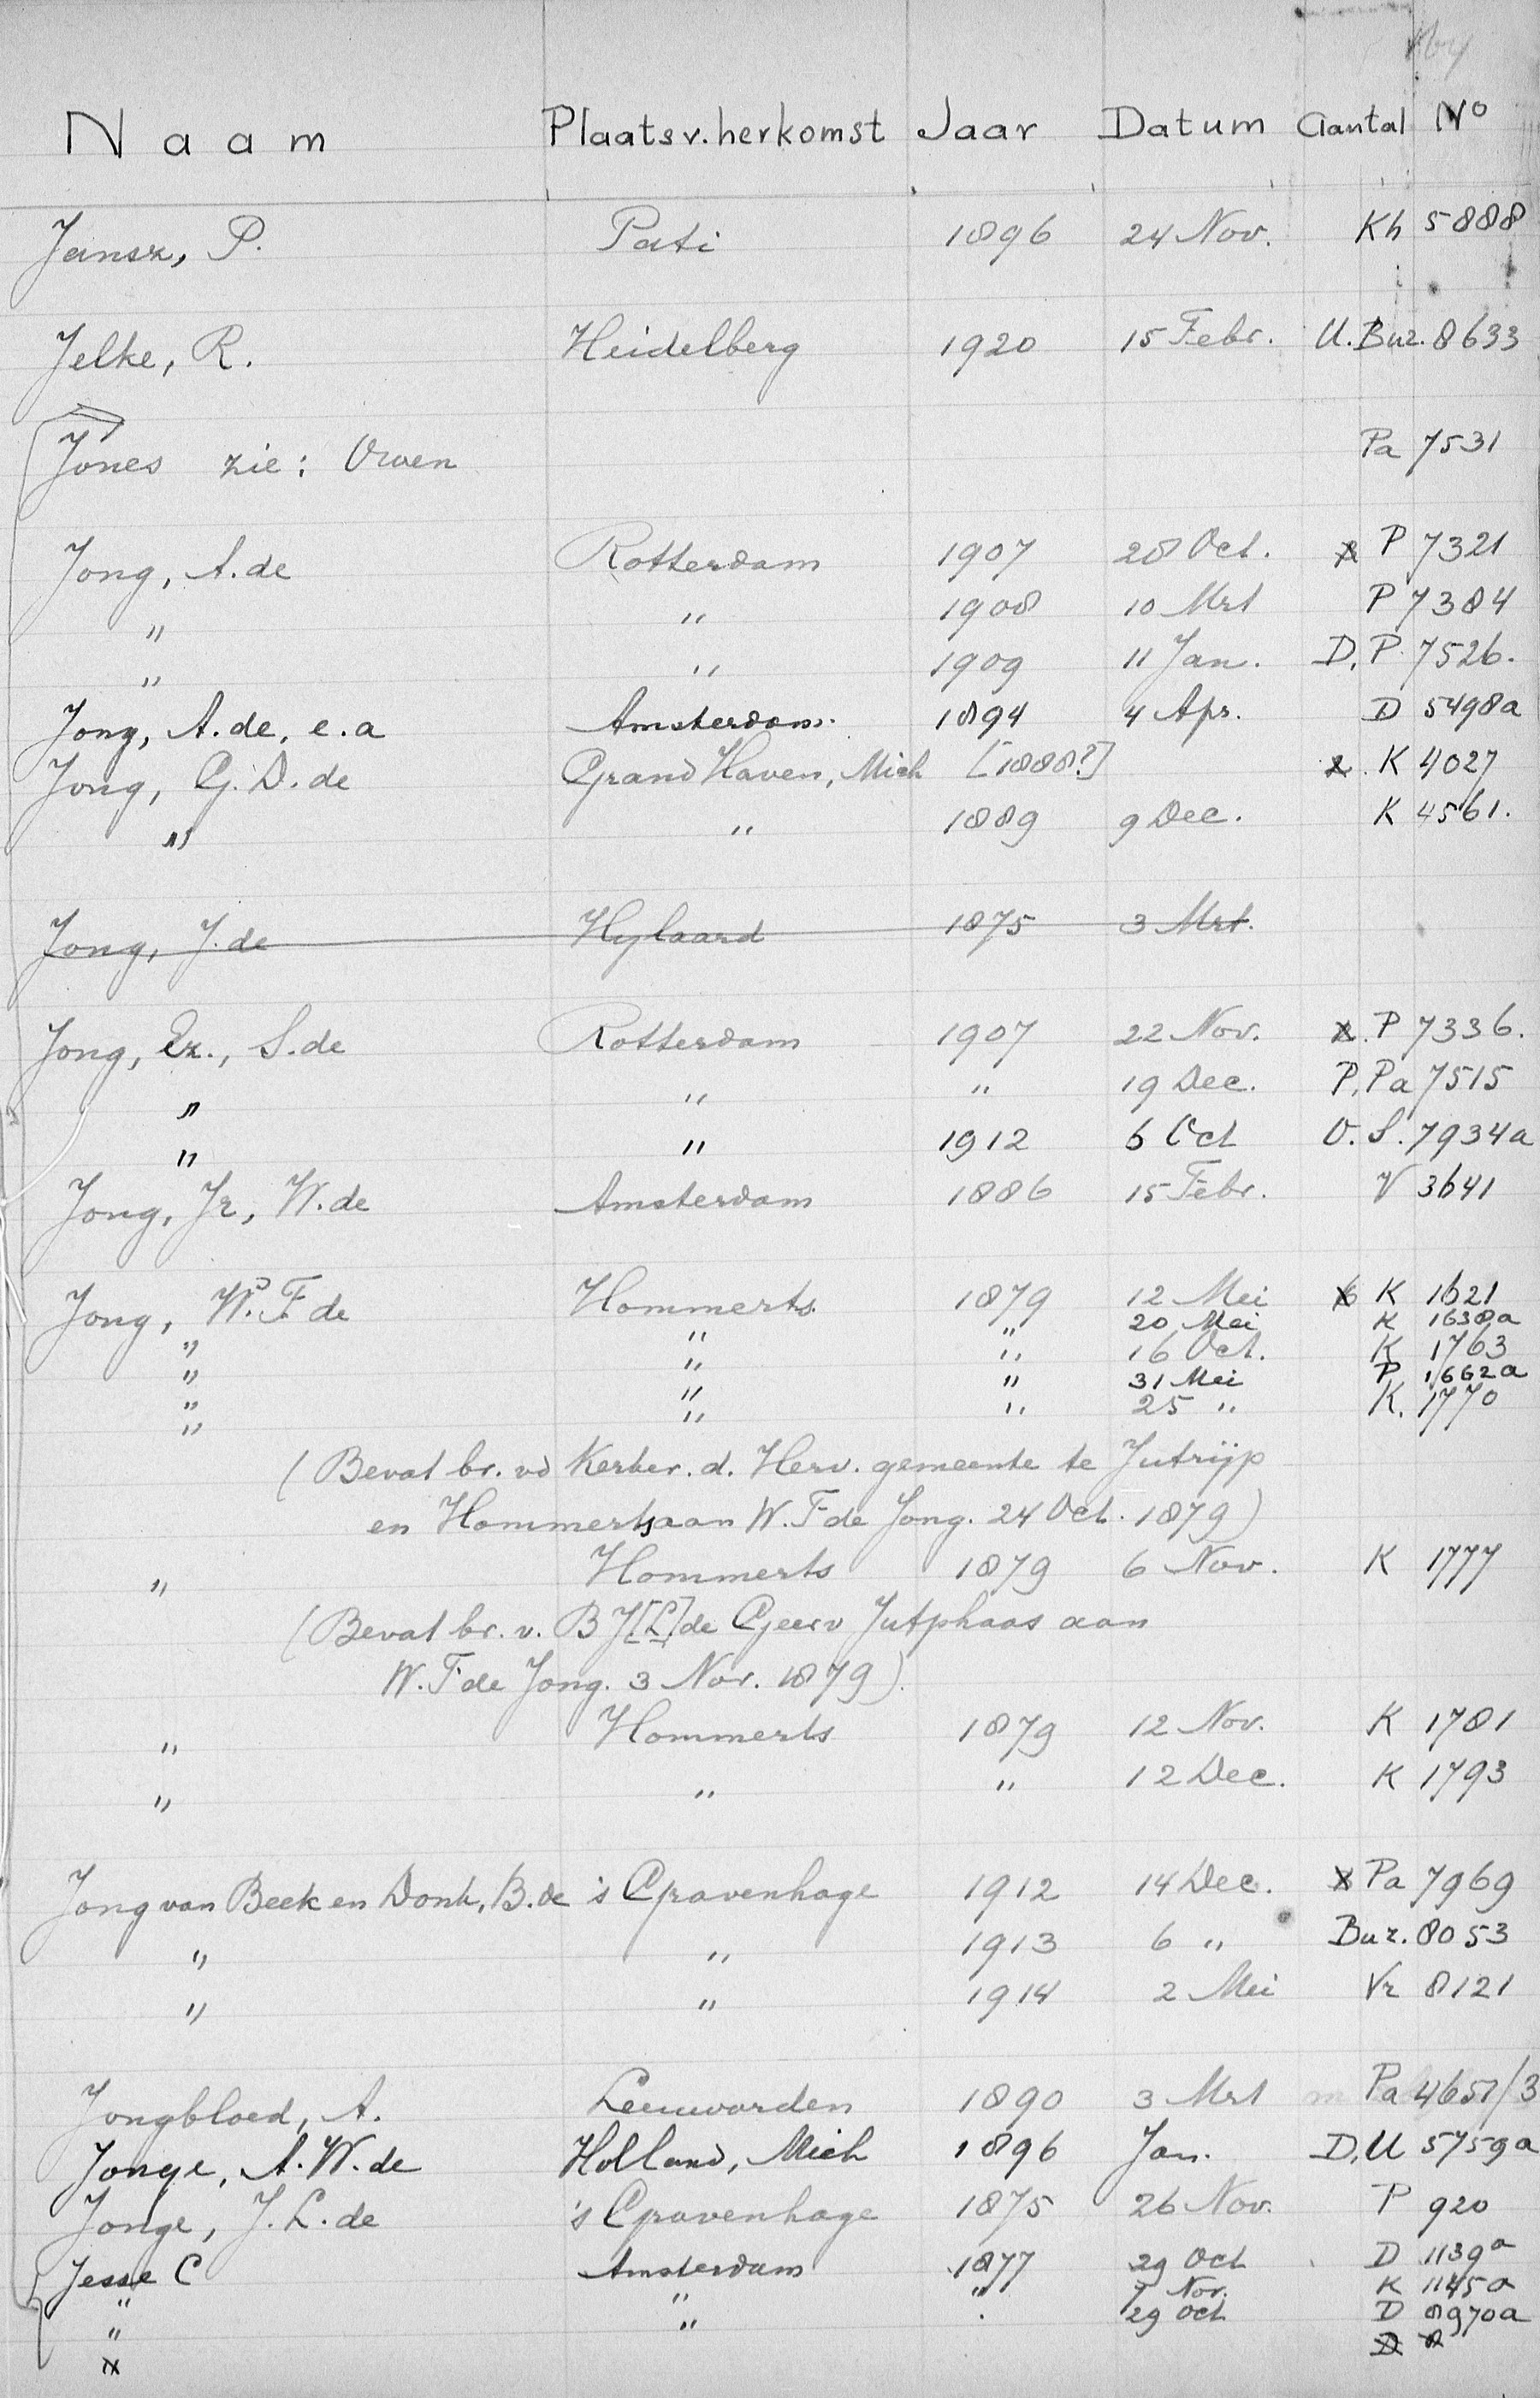 Naam Plaats v. herkomst Jaar Datum Aantal No
Jansz, P. Pati 1896 24 Nov. Kh 5888
Jelke, R. Heidelberg 1920 15 Febr. U. Buz. 8633
Jones zie: Owen Pa 7531
Jong, A. de Rotterdam 1907 28 Oct. P 7321
" " 1908 10 Mrt P 7384
" " 1909 11 Jan. D, P 7526.
Jong, A. de, e.a Amsterdam. 1894 4 Apr. D 5498a
Jong, G. D. de Grand Haven, Mich [1888?] 2. K 4027
" " 1889 9 Dec. K 4561.
Jong, J. de Hylaard 1875 3 Mrt.
Jong, Dz., S. de Rotterdam 1907 22 Nov. P 7336.
" " " 19 Dec. P, Pa 7515
" " 1912 6 Oct O. S. 7934a
Jong, Jr, W. de Amsterdam 1886 15 Febr. V 3641
Jong, W. F. de Hommerts 1879 12 Mei K 1621
" " " 20 Mei K 1638a
" " " 16 Oct. K 1763
" " " 31 Mei P 1662a
" " " 25 " K. 1770
(Bevat br. vd Kerker. d. Herv. gemeente te Jutrijp
en Hommerts aan W. F de Jong. 24 Oct. 1879)
" Hommerts 1879 6 Nov. K 1777
(Bevat br. v. B J[L] de Geer v Jutphaas aan
W. F de Jong. 3 Nov. 1879).
" Hommerts 1879 12 Nov. K 1781
" " " 12 Dec. K 1793
Jong van Beek en Donk, B. de 's Gravenhage 1912 14 Dec. Pa 7969
" " 1913 6 " Buz. 8053
" " 1914 2 Mei Vr 8121
Jongbloed, A. Leeuwarden 1890 3 Mrt Pa 4651/3
Jonge, A. W. de Holland, Mich 1896 Jan. D, U 5759a
Jonge, J. L. de 's Gravenhage 1875 26 Nov. P 920
Jesse C Amsterdam 1877 29 Oct D 1139a
" " " 7 Nov. K 1145a
" " 29 Oct D 8970a